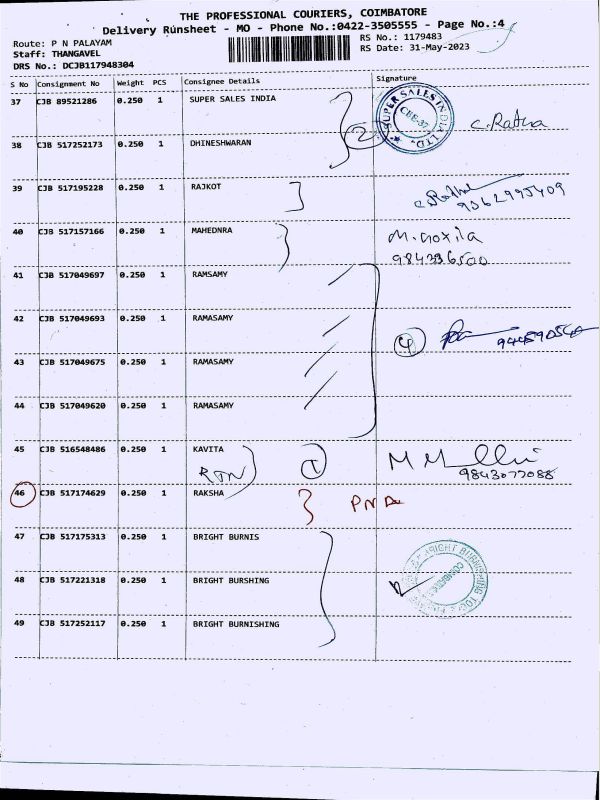 THE PROFESSIONAL COURIERS, COIMBATORE
Delivery Runsheet - MO - Phone No.:0422-3505555 - Page No.:4
Route: P N PALAYAM
RS No.: 1179483
Staff: THANGAVEL
RS Date: 31-May-2023
DRS No.: DCJB117948304
S No Consignment No Weight PCS Consignee Details Signature
37 CJB 89521286 0.250 1 SUPER SALES INDIA
SUPER SALES INDIA LTD.
CBE-37
2
C. Ratha
38 CJB 517252173 0.250 1 DHINESHWARAN
39 CJB 517195228 0.250 1 RAJKOT
9362995409
40 CJB 517157166 0.250 1 MAHEDNRA
984336500
41 CJB 517049697 0.250 1 RAMSAMY
42 CJB 517049693 0.250 1 RAMASAMY
4
43 CJB 517049675 0.250 1 RAMASAMY
44 CJB 517049620 0.250 1 RAMASAMY
45 CJB 516548486 0.250 1 KAVITA
RTN
1
9843077088
46 CJB 517174629 0.250 1 RAKSHA
PNA
47 CJB 517175313 0.250 1 BRIGHT BURNIS
48 CJB 517221318 0.250 1 BRIGHT BURSHING
49 CJB 517252117 0.250 1 BRIGHT BURNISHING